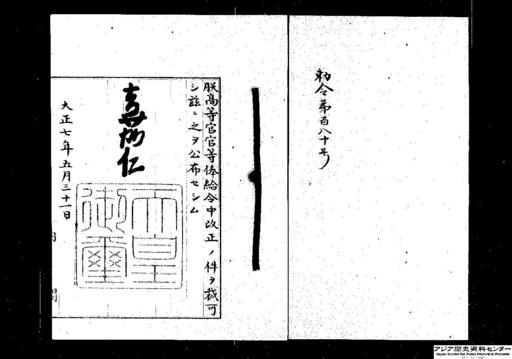 勅令第百八十号
朕高等官官等俸給令中改正ノ件ヲ裁可
シ茲ニ之ヲ公布セシム
嘉仁
天皇
御璽
大正七年五月三十一日
アジア歴史資料センター
Japan Center for Asian Historical Records